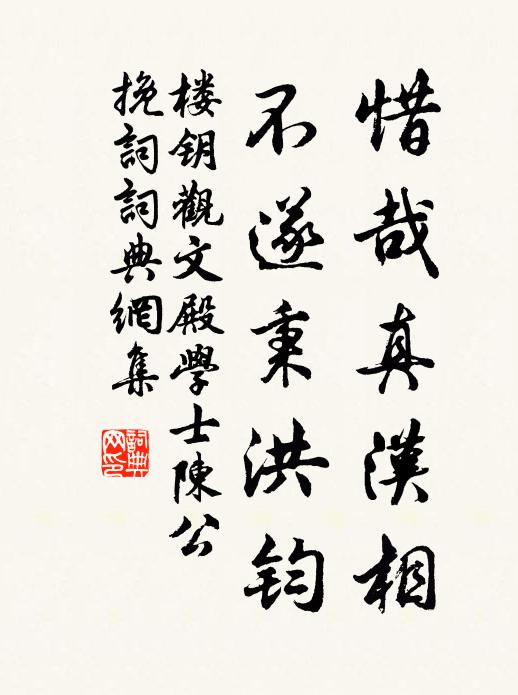 惜哉真漢相
不遂秉洪鈞
楼钥觀文殿學士陳公
挽詞詞典網集
詞典
网印